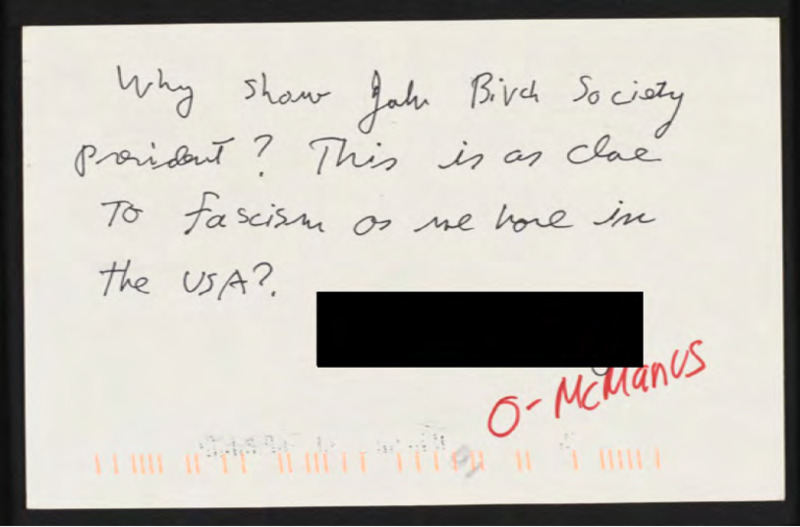 Why show John Birch Society
president? This is as close
To fascism as we have in
the USA?.
O- McManus